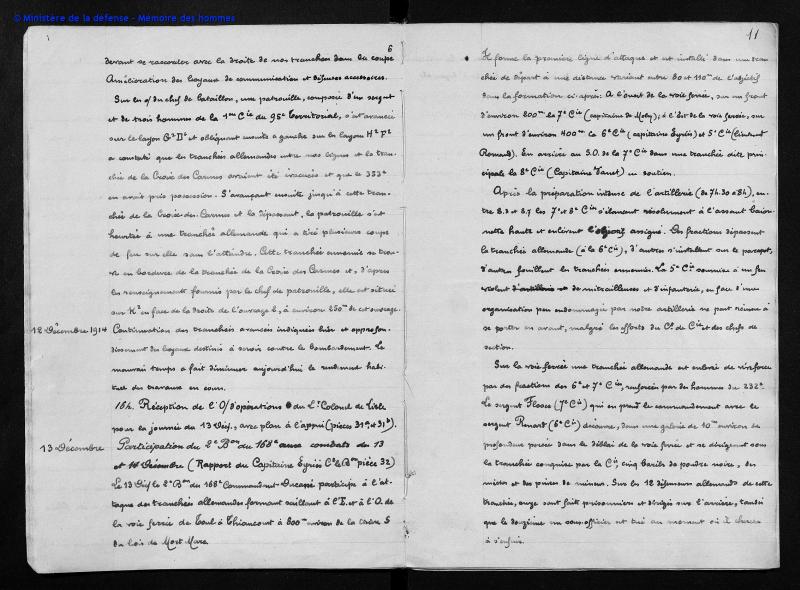 © Ministère de la défense - Mémoire des hommes
6
devant se raccorder avec la droite de nos tranchées dans la coupe
Amélioration des boyaux de communication et défenses accessoires.
Sur l'o/ du chef de bataillon, une patrouille, composée d'un sergent
et de trois hommes de la 1ère Cie du 95e Territorial, s'est avancée
sur le layon et obliquant ensuite à gauche sur le layon
a constaté que les tranchées allemandes entre nos lignes et la tran-
chée de la Croix des Carmes avaient été évacuées et que le 353e
en avait pris possession. S'avançant ensuite jusqu'à cette tran-
chée de la Croix-des-Carmes et la dépassant, la patrouille s'est
heurtée à une tranchée allemande qui a tiré plusieurs coups
de feu sur elle sans l'atteindre. Cette tranchée ennemie se trou-
ve en bordure de la tranchée de la Croix des Carmes et, d'après
les renseignements fournis par le chef de patrouille, elle est située
sur en face de la droite de l'ouvrage 2, à environ 250m de cet ouvrage.
12 Décembre 1914 Continuation des tranchées avancées indiquées hier et approfon-
dissement des boyaux destinés à servir contre le bombardement. Le
mauvais temps a fait diminuer aujourd'hui le rendement habi-
tuel des travaux en cours.
16h. Réception de l'O/ d'opérations du Lt Colonel de
pour la journée du 13 Déc., avec plan à l'appui (pièces 31a et 31b).
13 Décembre Participation du 2e Bon du 168e aux combats du 13
et 14 Décembre (Rapport du Capitaine Eyriès Ct le Bon pièce 32)
Le 13 Déc/ le 2e Bon du 168e Commandant Ducassé participe à l'at-
taque des tranchées allemandes formant saillant à l'E. et à l'O. de
la voie ferrée de Toul à Thiaucourt à 800m environ de la lisière S
du bois de Mort Mare.
11
Il forme la première ligne d'attaque et est installé dans une tran-
chée de départ à une distance variant entre 80 et 110m de l'objectif
dans la formation ci-après: A l'ouest de la voie ferrée, sur un front
d'environ 200m la 7e Cie (capitaine de Moby); à l'Est de la voie ferrée, sur
un front d'environ 400m la 6e Cie (capitaine Eyriès) et 5e Cie (lieutenant
Renaud). En arrière au S.O. de la 7e Cie dans une tranchée dite prin-
cipale la 8e Cie (Capitaine Vanet) en soutien.
Après la préparation intense de l'artillerie (de 7h.30 à 8h), en-
tre 8.3 et 8.7 les 7e et 6e Cie s'élancent résolument à l'assaut baïon-
nette haute et enlèvent l'objectif assigné. Des fractions dépassent
la tranchée allemande (à la 6e Cie), d'autres s'installent sur le parapet,
d'autres fouillent les tranchées ennemies. La 5e Cie soumise à un feu
violent de mitrailleuses et d'infanterie, en face d'une
organisation peu endommagée par notre artillerie ne peut réussir à
se porter en avant, malgré les efforts du Ct de Cie et des chefs de
section.
Sur la voie ferrée une tranchée allemande est enlevée de vive force
par des fractions des 6e et 7e Cies, renforcées par des hommes du 232e.
Le sergent Flosse (7e Cie) qui en prend le commandement avec le
sergent Renard (6e Cie) découvre, dans une galerie de 10m environ de
profondeur percée dans le déblai de la voie ferrée et se dirigeant sous
la tranchée conquise par la Cie, cinq barils de poudre noire, des
mèches et des poires de mineurs. Sur les 12 défenseurs allemands de cette
tranchée, onze sont faits prisonniers et dirigés sur l'arrière, tandis
que le douzième un sous-officier est tué au moment où il cherche
à s'enfuir.